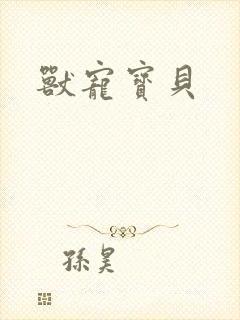 獸寵寶貝
孫昊